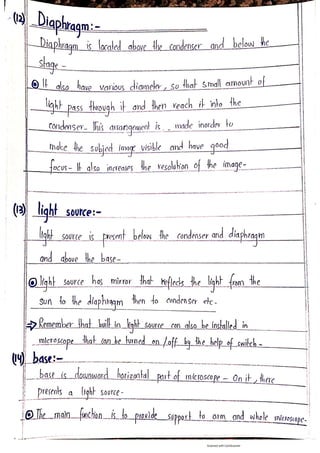 (12) Diaphragm:-
Diaphragm is located above the condenser and below the
stage -
It also have various diameter, so that small amount of
light pass through it and then reach it into the
condenser- This arrangement is , made inorder to
make the subject image visible and have good
focus- It also increases the resolution of the image-
(13) light source:-
light source is present below the condenser and diaphragm
and above the base-
light source has mirror that reflects the light from the
sun to the diaphragm then to condenser etc-
⇒ Remember that built in light source can also be installed in
microscope that can be turned on /off by the help of switch-
(14) base:-
base is downward horizontal part of microscope - On it, there
presents a light source-
The main function is to provide support to arm and whole microscope-
Scanned with CamScanner